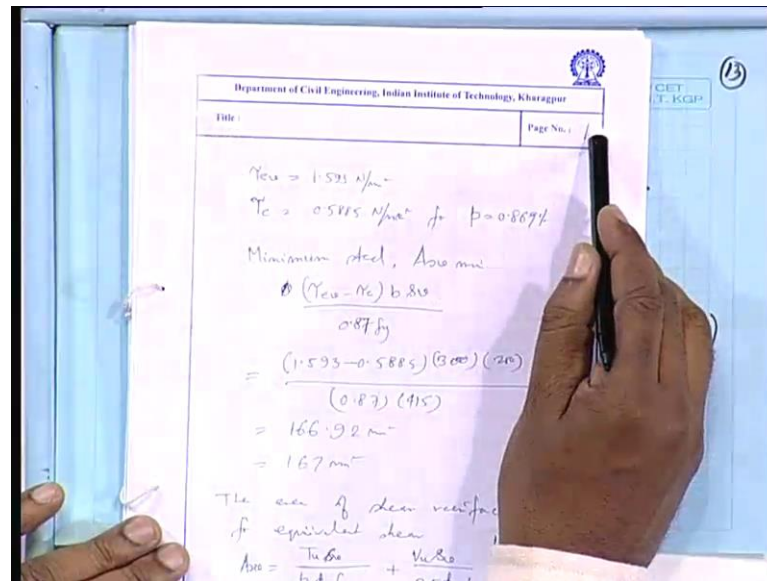 13
CET
I.T. KGP
Department of Civil Engineering, Indian Institute of Technology, Kharagpur
Title :
Page No. : 1
τev = 1.593 N/m²
τc = 0.5885 N/mm² for p = 0.869%
Minimum steel, Asv min
(τev - τc) b sv
0.87 fy
= (1.593-0.5885) (300) (200)
(0.87) (415)
= 166.92 mm²
= 167 mm²
The area of shear reinfor
for equivalent shear
Asv = Tu sv + Vu sv